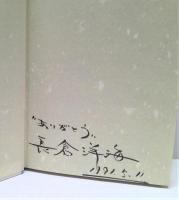 "ありがとう"
長倉洋海
1991.5.11